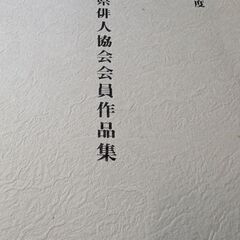 度
県俳人協会会員作品集